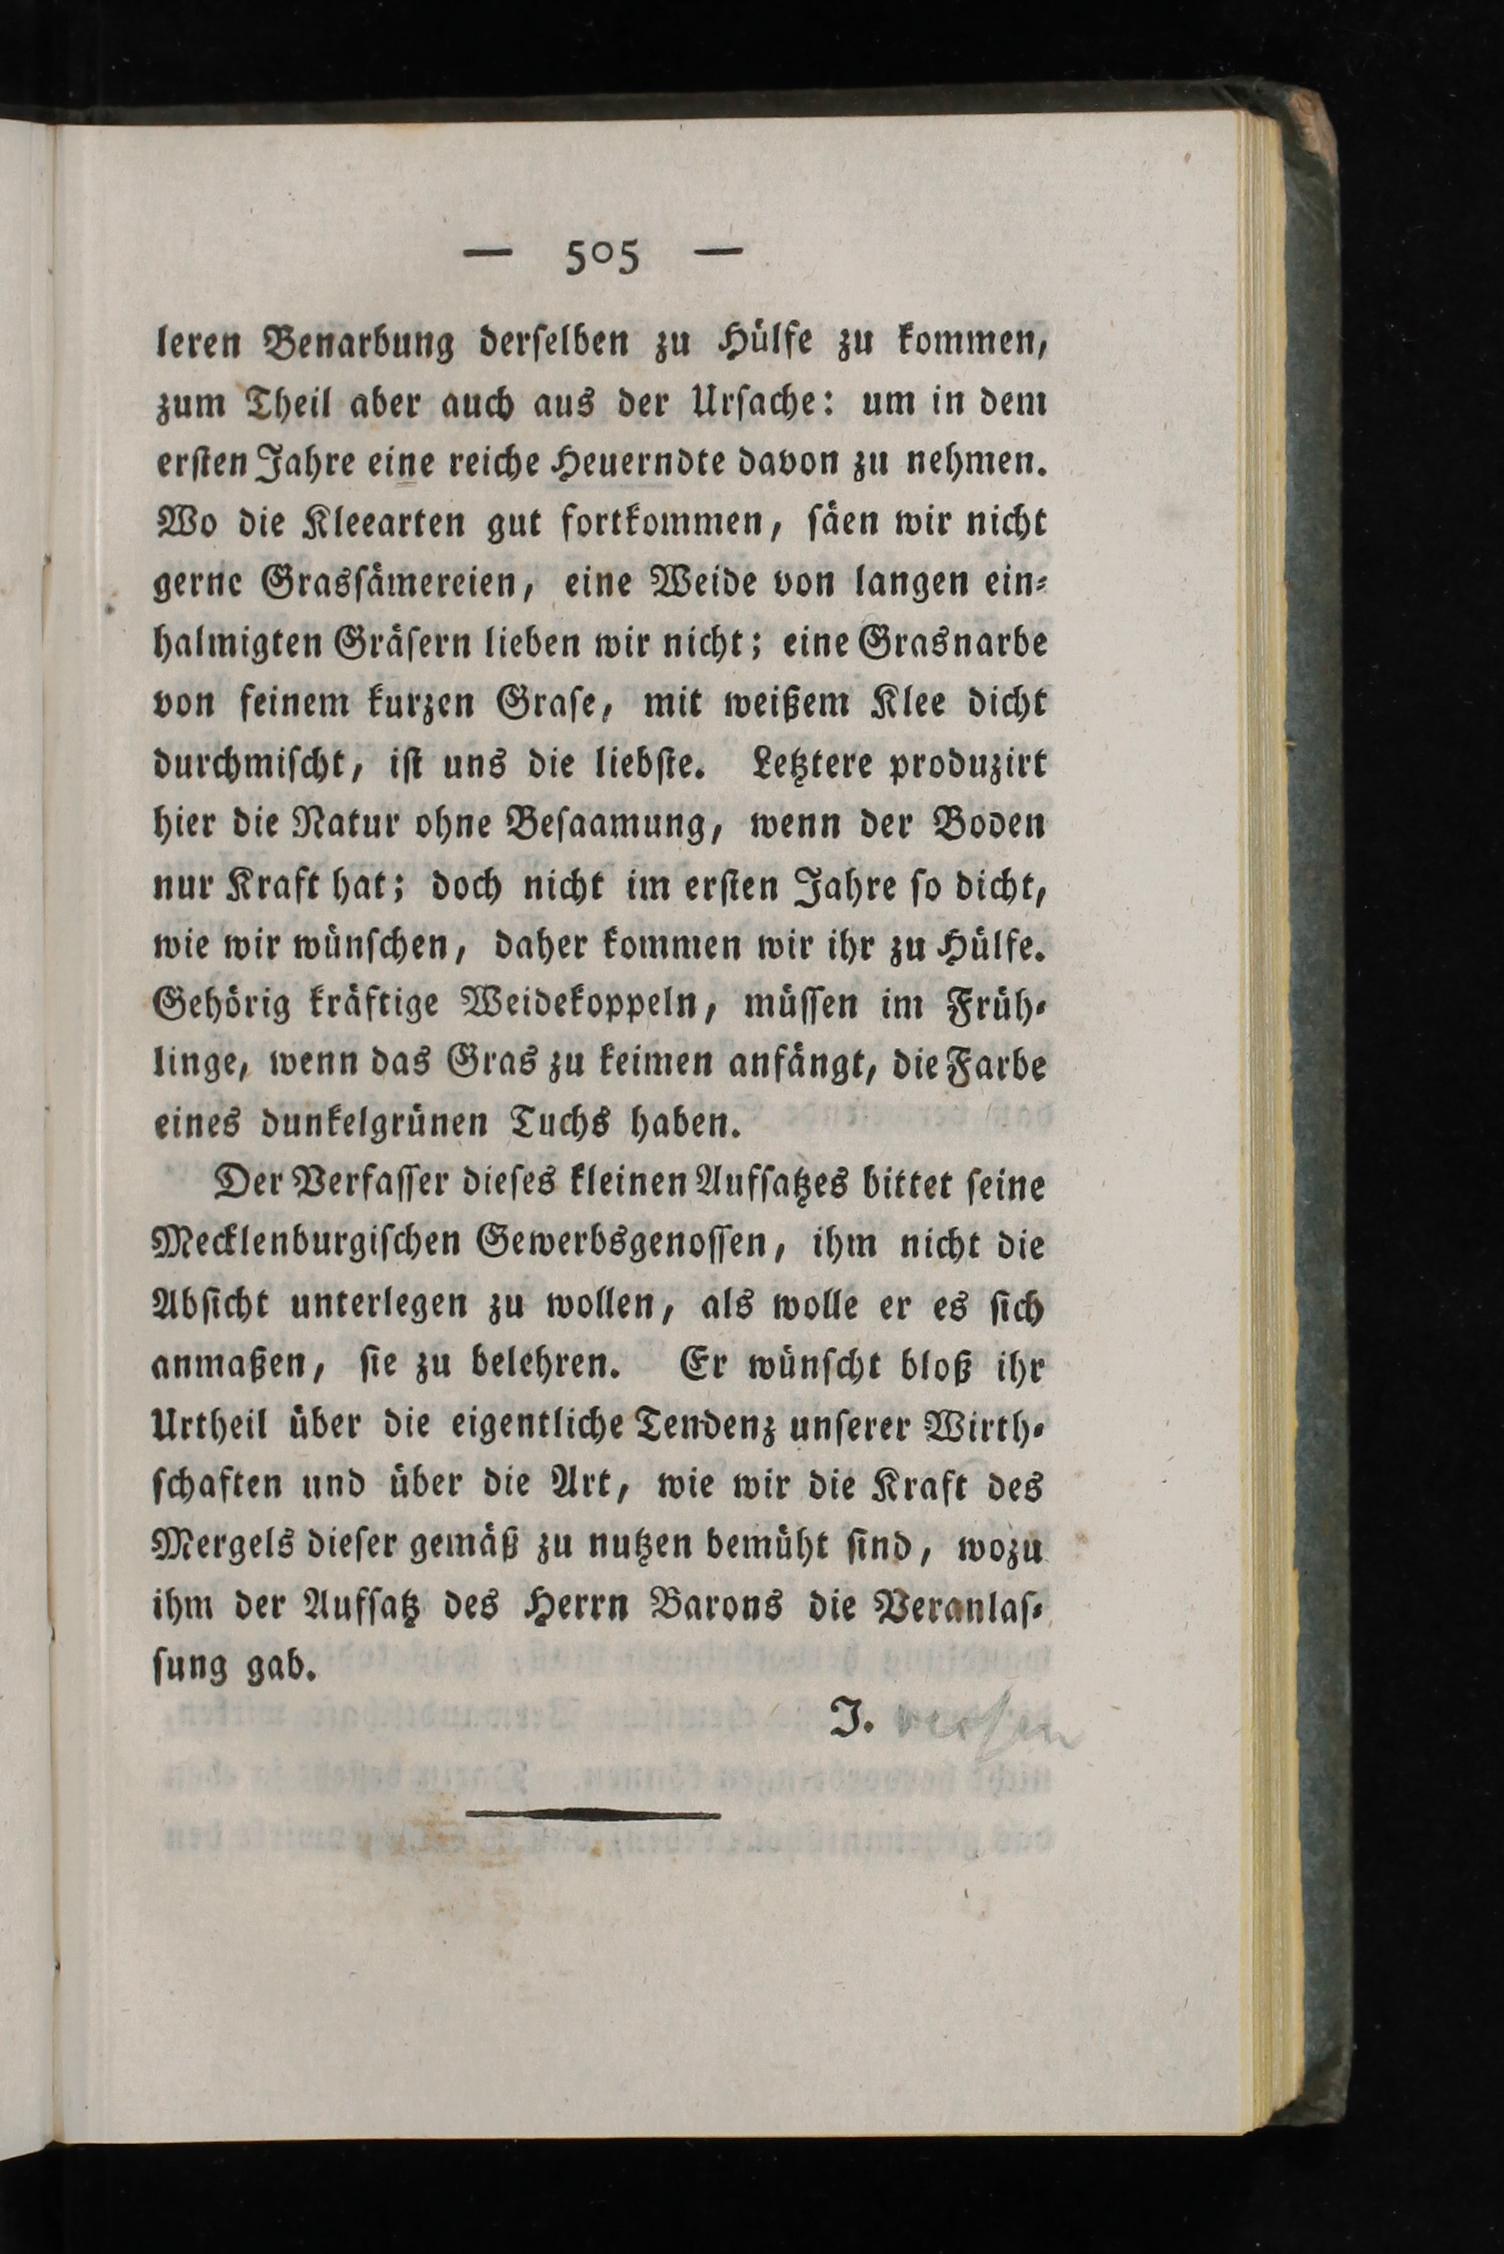 — 505 —
leren Benarbung derſelben zu Hülfe zu kommen,
zum Theil aber auch aus der Urſache: um in dem
erſten Jahre eine reiche Heuerndte davon zu nehmen.
Wo die Kleearten gut fortkommen, ſäen wir nicht
gerne Grasſämereien, eine Weide von langen ein⸗
halmigten Gräſern lieben wir nicht; eine Grasnarbe
von feinem kurzen Graſe, mit weißem Klee dicht
durchmiſcht, iſt uns die liebſte. Letztere produzirt
hier die Natur ohne Beſaamung, wenn der Boden
nur Kraft hat; doch nicht im erſten Jahre ſo dicht,
wie wir wünſchen, daher kommen wir ihr zu Hülfe.
Gehörig kräftige Weidekoppeln, müſſen im Früh⸗
linge, wenn das Gras zu keimen anfängt, die Farbe
eines dunkelgrünen Tuchs haben.
Der Verfaſſer dieſes kleinen Aufſatzes bittet ſeine
Mecklenburgiſchen Gewerbsgenoſſen, ihm nicht die
Abſicht unterlegen zu wollen, als wolle er es ſich
anmaßen, ſie zu belehren. Er wünſcht bloß ihr
Urtheil über die eigentliche Tendenz unſerer Wirth⸗
ſchaften und über die Art, wie wir die Kraft des
Mergels dieſer gemäß zu nutzen bemüht ſind, wozu
ihm der Aufſatz des Herrn Barons die Veranlaſ⸗
ſung gab.
J.